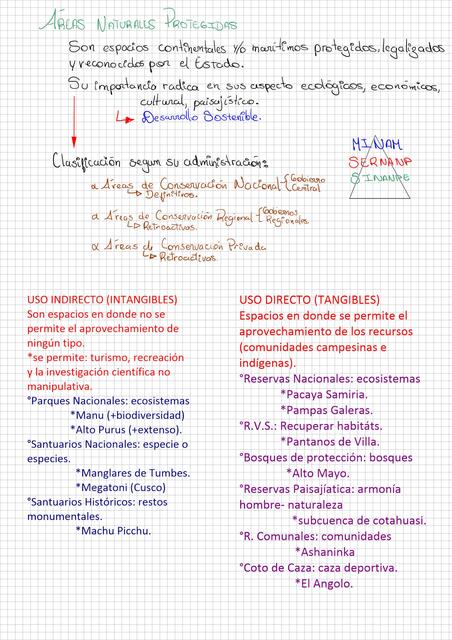 Áreas Naturales Protegidas
Son espacios continentales y/o marítimos protegidos, legalizados
y reconocidos por el Estado.
Su importancia radica en sus aspecto ecológicos, económicos,
cultural, paisajístico.
Desarrollo Sostenible.
Clasificación segum su administración:
MINAM
SERNANP
SINANPE
α Áreas de Conservación Nacional { Gobierno Central
Definitivos.
α Áreas de Conservación Regional { Gobiernos Regionales
Retroactivos.
α Áreas de Conservación Privada
Retroactivos.
USO INDIRECTO (INTANGIBLES)
Son espacios en donde no se
permite el aprovechamiento de
ningún tipo.
*se permite: turismo, recreación
y la investigación científica no
manipulativa.
°Parques Nacionales: ecosistemas
*Manu (+biodiversidad)
*Alto Purus (+extenso).
°Santuarios Nacionales: especie o
especies.
*Manglares de Tumbes.
*Megatoni (Cusco)
°Santuarios Históricos: restos
monumentales.
*Machu Picchu.
USO DIRECTO (TANGIBLES)
Espacios en donde se permite el
aprovechamiento de los recursos
(comunidades campesinas e
indígenas).
°Reservas Nacionales: ecosistemas
*Pacaya Samiria.
*Pampas Galeras.
°R.V.S.: Recuperar habitáts.
*Pantanos de Villa.
°Bosques de protección: bosques
*Alto Mayo.
°Reservas Paisajíatica: armonía
hombre- naturaleza
*subcuenca de cotahuasi.
°R. Comunales: comunidades
*Ashaninka
°Coto de Caza: caza deportiva.
*El Angolo.